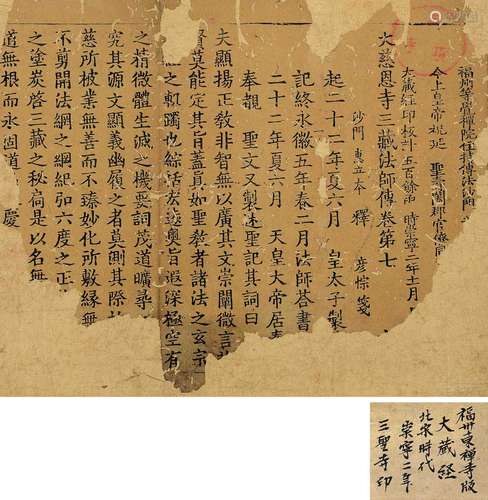 福州等覺禪院住持傳法沙門
今上皇帝祝延 聖壽闔郡官僚同
大藏經印板計五百餘函 時崇寧二年十一月
大慈恩寺三藏法師傳卷第七
沙門 惠立本 釋 彥悰箋
起二十二年夏六月 皇太子製
記終永徽五年春二月法師荅書
二十二年夏六月 天皇大帝居春
奉觀 聖文又製述聖記其詞曰
夫顯揚正教非智無以廣其文崇闡微言
賢莫能定其旨蓋真如聖教者諸法之玄宗
之軌躅也綜括宏遠奧旨遐深極空有
之精微體生滅之機要詞茂道曠尋
究其源文顯義幽履之者莫測其際
慈所被業無善而不臻妙化所敷緣無
不剪開法網之綱紀弘六度之正
之塗炭啓三藏之秘扃是以名無
道無根而永固道 慶
福州東禪寺版
大藏経
北宋時代
崇寧二年
三聖寺印